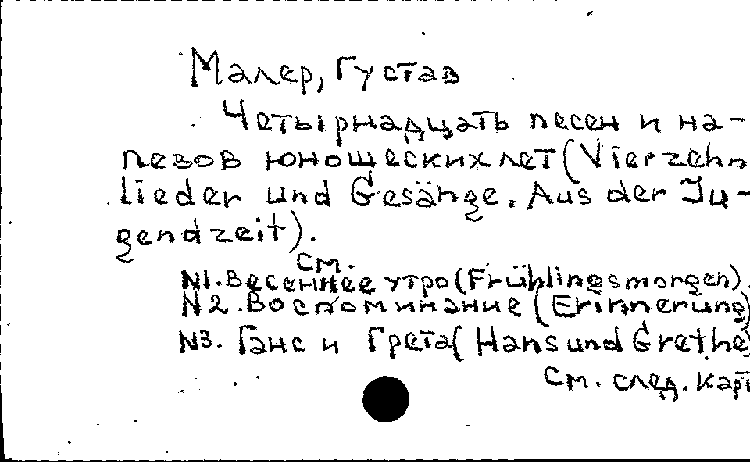 Малер, Густав
Четырнадцать песен и на-
певов юношеских лет (Vierzehn
lieder und Gesänge. Aus der Ju-
gendzeit).
См.
N1. Весеннее утро (Frühlingsmorgen).
N2. Воспоминание (Erinnerung)
N3. Ганс и Грета (Hans und Grethe)
См. след. карт